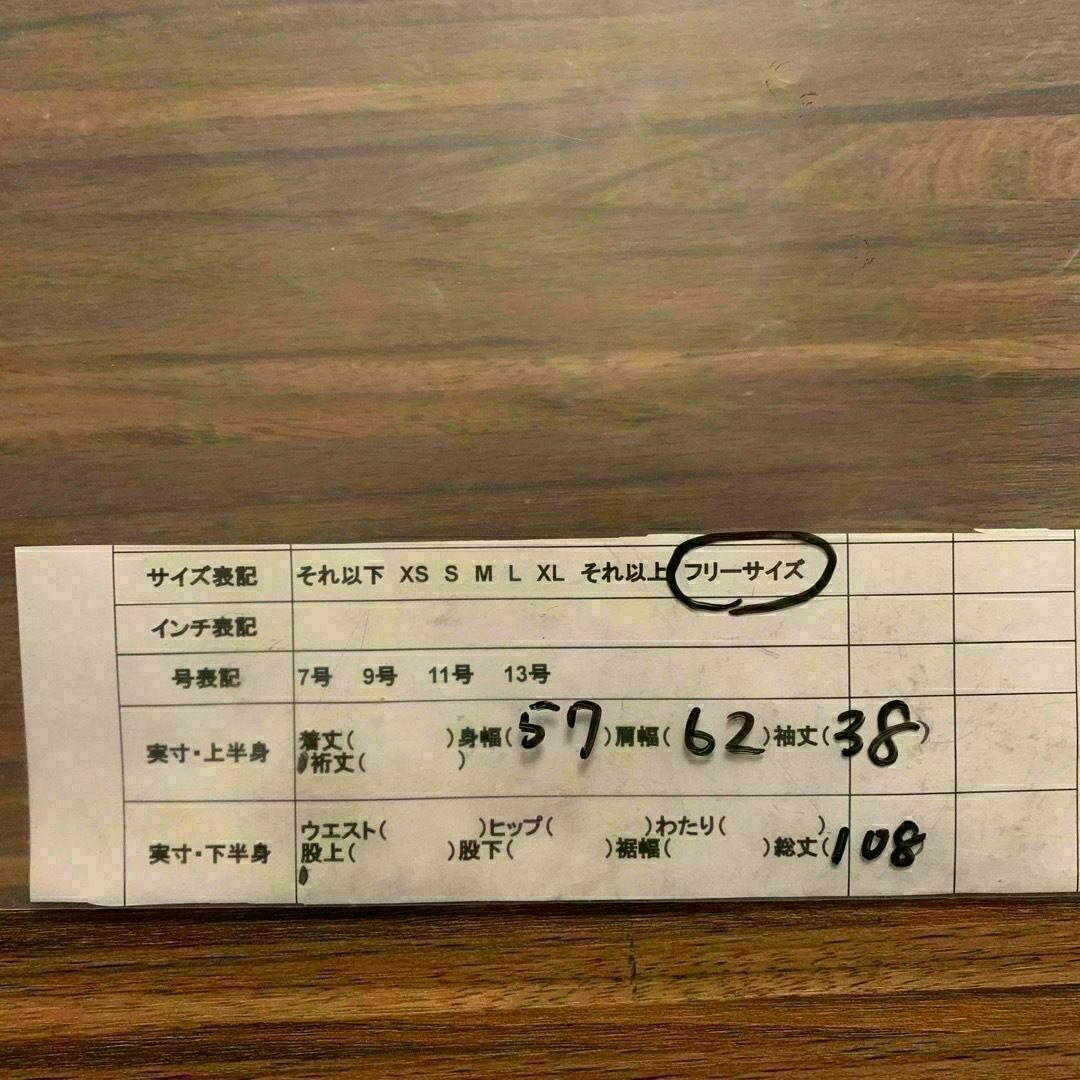 サイズ表記 それ以下 XS S M L XL それ以上 フリーサイズ
インチ表記
号表記 7号 9号 11号 13号
実寸・上半身 着丈( )身幅(57)肩幅(62)袖丈(38)
裄丈( )
実寸・下半身 ウエスト( )ヒップ( )わたり( )
股上( )股下( )裾幅( )総丈(108